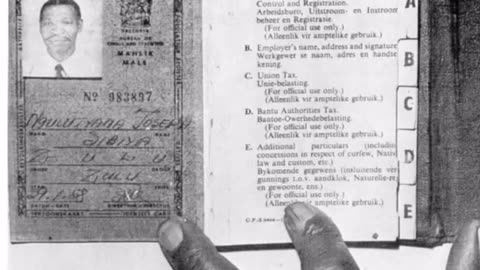 PRETORIA
BUREAU OF
MANLIK
MALE
No 983897
JOSEPH
ZULU
ZULU
Control and Registration.
Arbeidsburo, Uitstroom- en Instroom
beheer en Registrasie.
(For official use only.)
(Alleenlik vir amptelike gebruik.)
B. Employer's name, address and signature
Werkgewer se naam, adres en handte
kening.
C. Union Tax.
Unie-belasting.
(For official use only.)
(Alleenlik vir amptelike gebruik.)
D. Bantu Authorities Tax.
Bantoe-Owerhedebelasting.
(For official use only.)
(Alleenlik vir amptelike gebruik.)
E. Additional particulars (includin
concessions in respect of curfew, Nativ
law and custom, etc.)
Bykomende gegewens (insluitende ver
gunnings i.v.m. aandklok, Naturelle-re
en gewoonte, ens.)
(For official use only.)
(Alleenlik vir amptelike gebruik.)
A
B
C
D
E